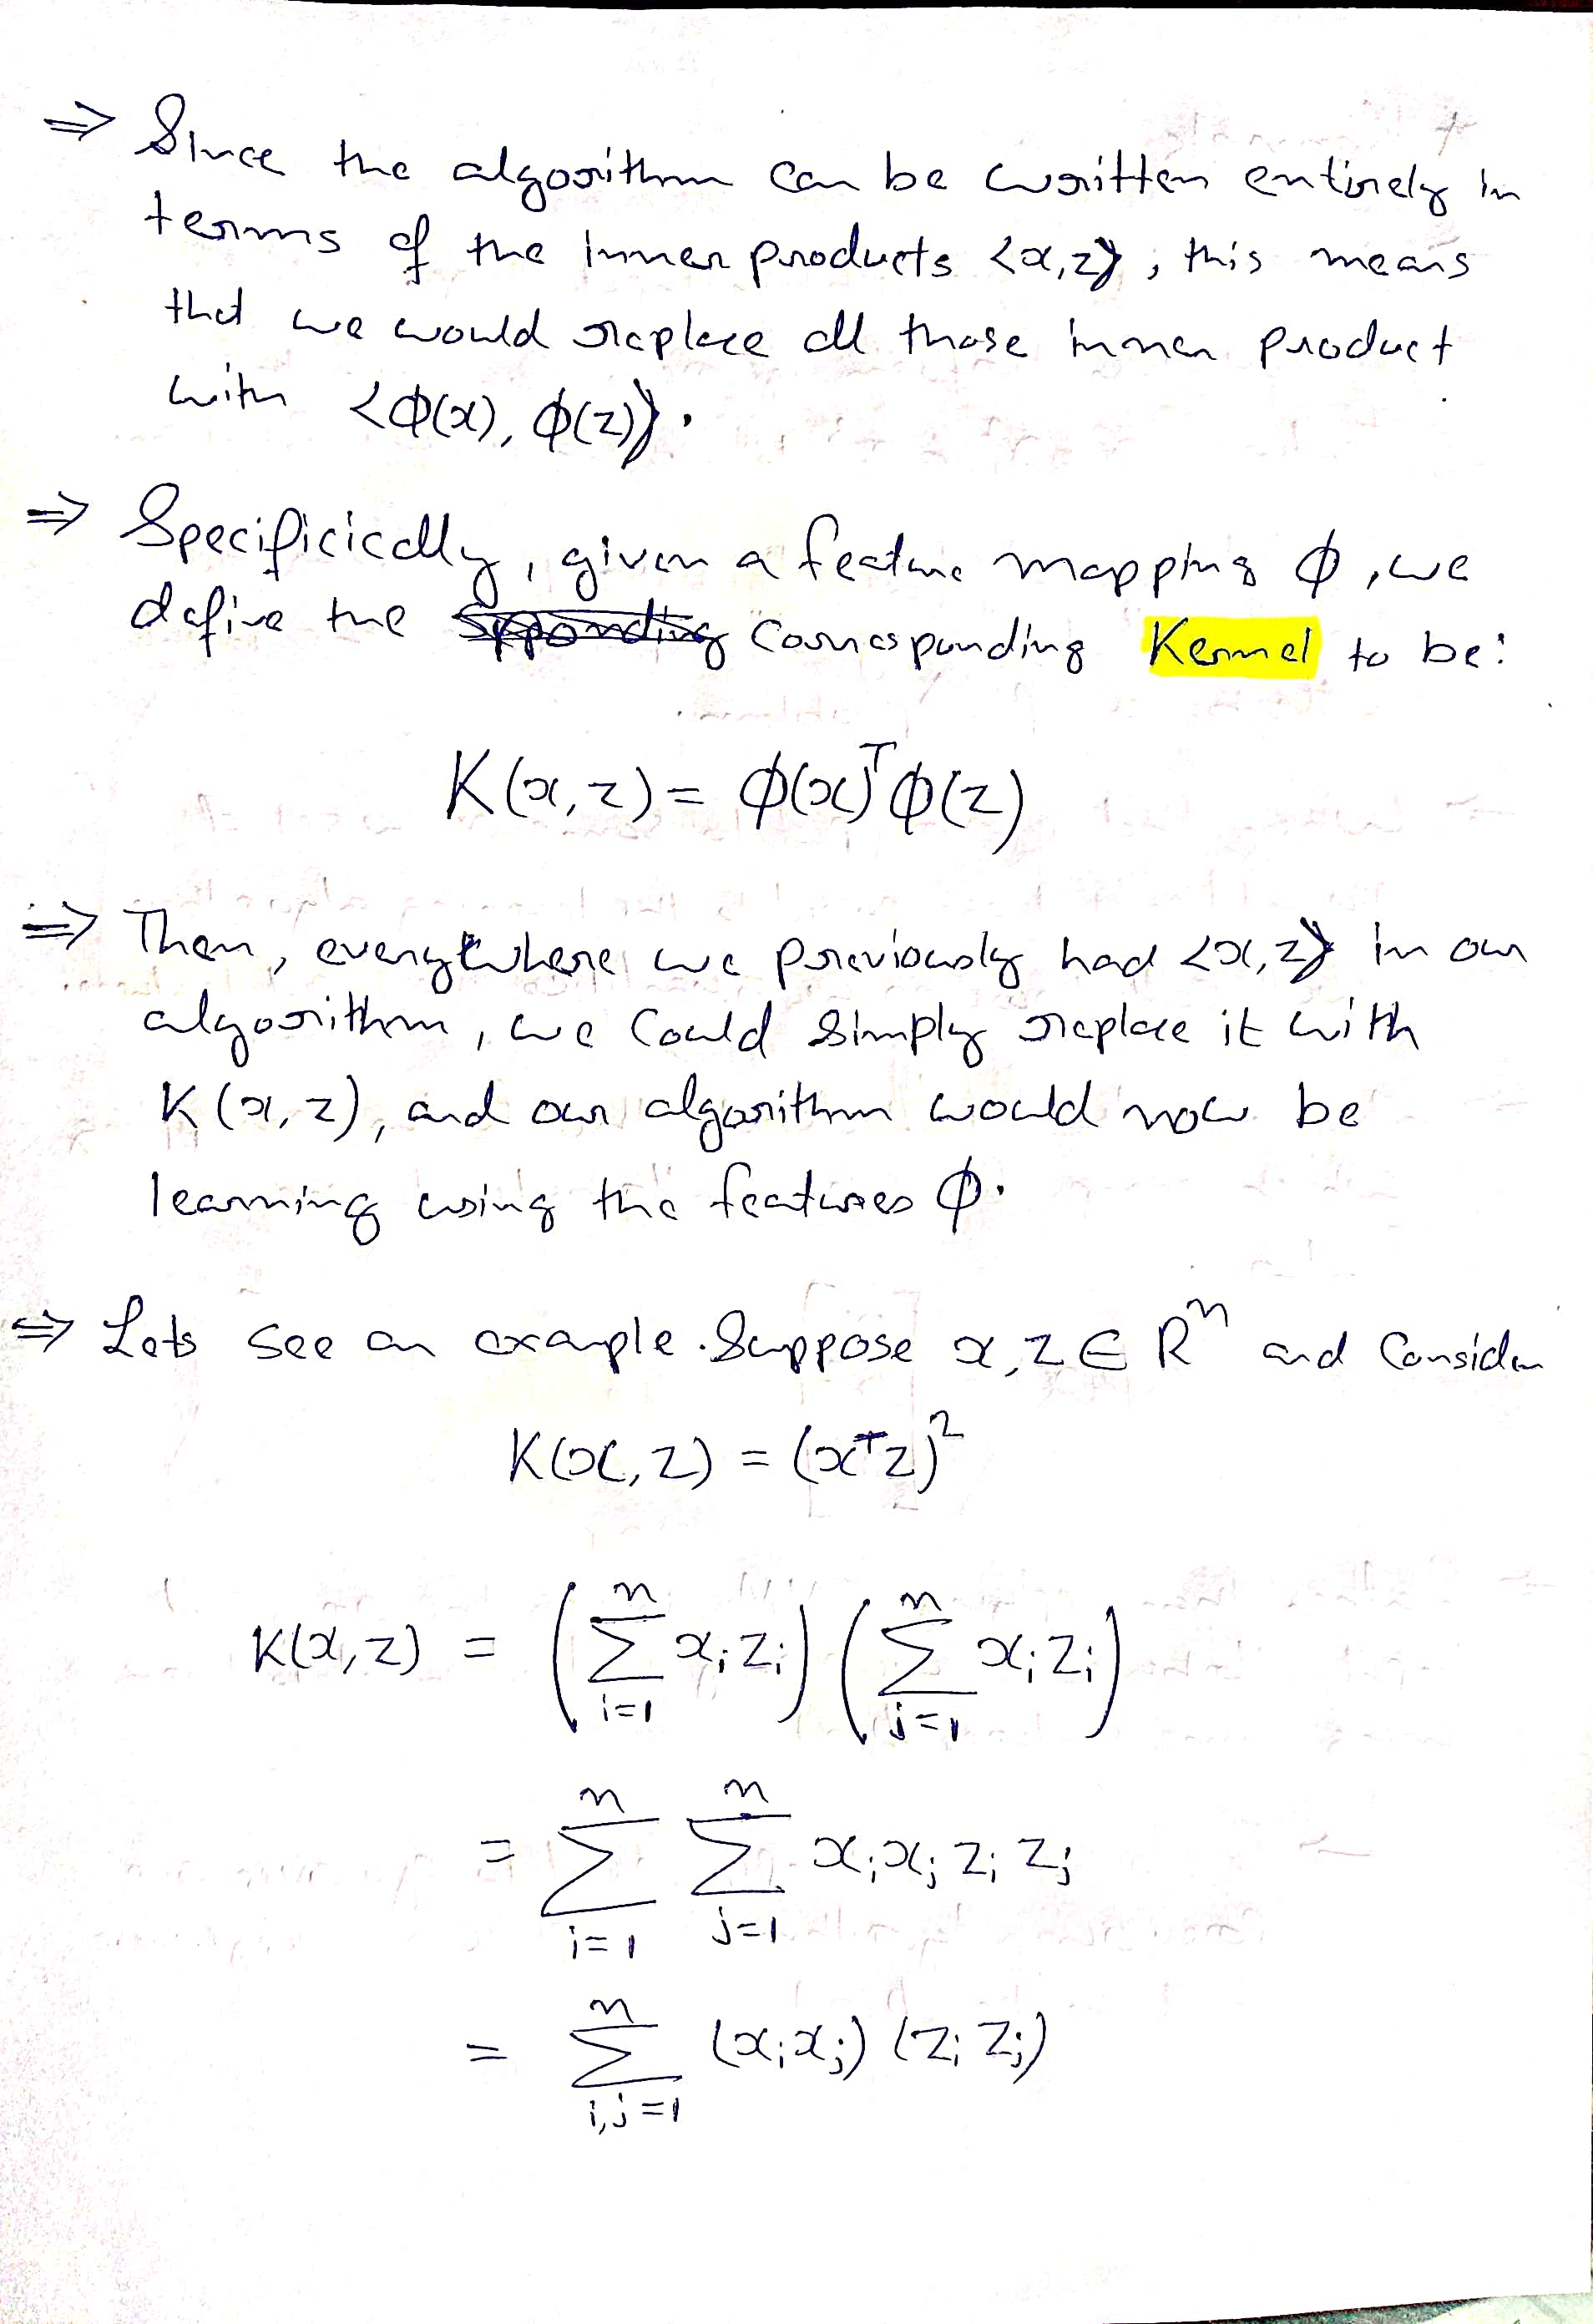 ⇒ Since the algorithm can be written entirely in
terms of the inner products <x,z>, this means
that we would replace all those inner product
with <ϕ(x), ϕ(z)>.
⇒ Specificically, given a feature mapping ϕ, we
define the corresponding Kernel to be:
K(x,z) = ϕ(x)ᵀϕ(z)
⇒ Then, everywhere we previously had <x,z> in our
algorithm, we could simply replace it with
K(x,z), and our algorithm would now be
learning using the features ϕ.
⇒ Lets see an example. Suppose x,z ∈ Rⁿ and Consider
K(x,z) = (xᵀz)²
K(x,z) = (∑ⁿᵢ₌₁ xᵢzᵢ) (∑ⁿⱼ₌₁ xᵢzᵢ)
= ∑ⁿᵢ₌₁ ∑ⁿⱼ₌₁ xᵢxⱼzᵢzⱼ
= ∑ⁿᵢ,ⱼ₌₁ (xᵢxⱼ)(zᵢzⱼ)